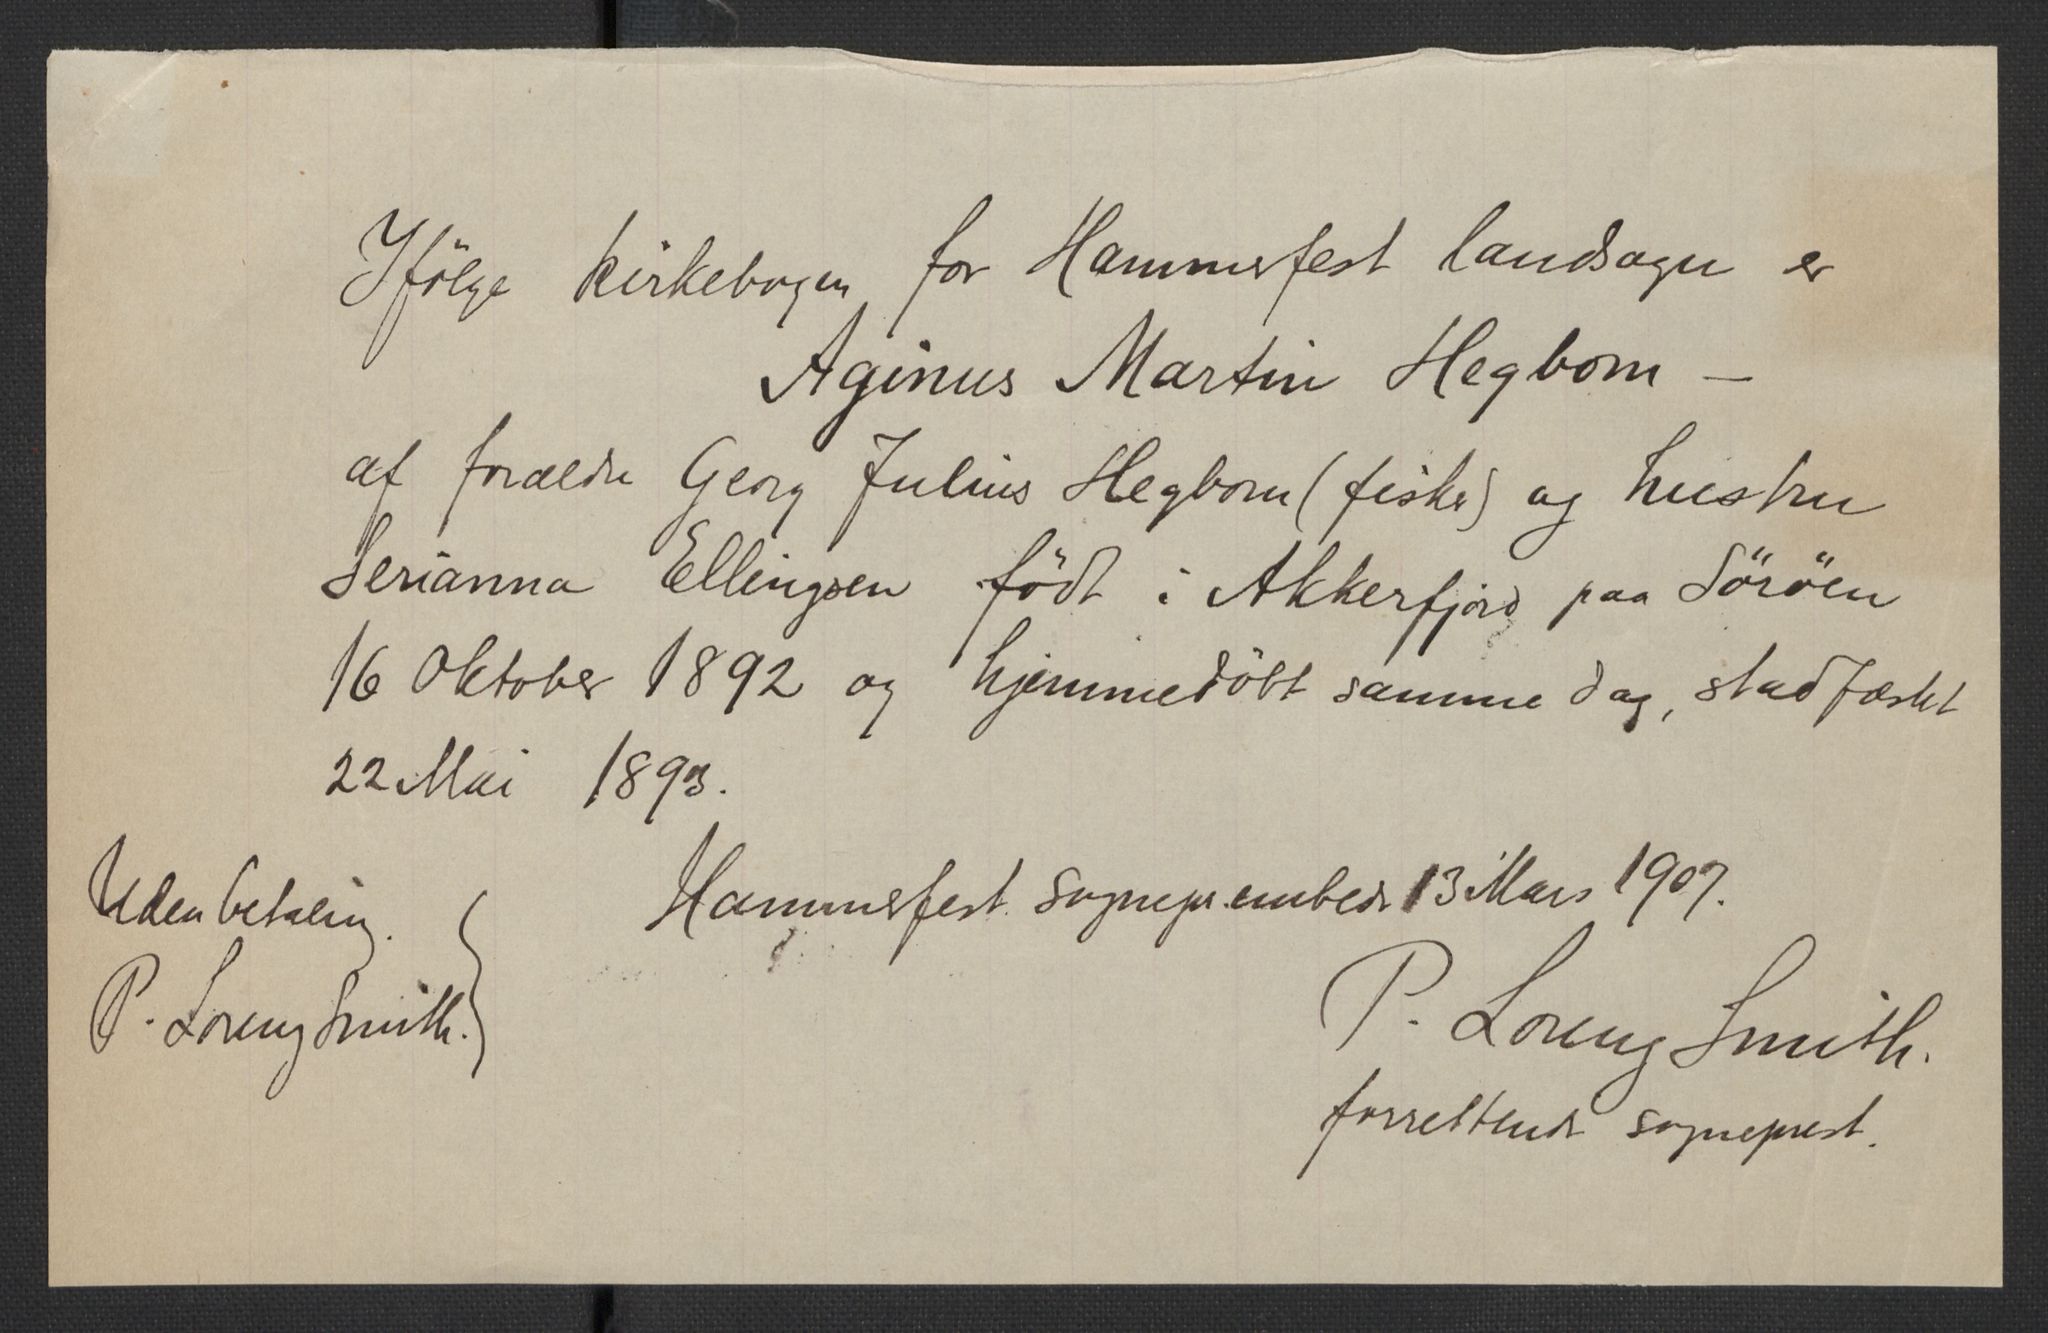 Ifölge kirkebogen for Hammerfest landsogn er
Aginus Martin Hegbom –
af forældre Georg Julius Hegbom (fisker) og hustru
Serianna Ellingsen födt i Akkerfjord paa Söröen
16 Oktober 1892 og hjemmedöbt samme dag, stadfæstet
22 Mai 1893.
Hammerfest sognepr.embede 13 Mars 1907.
Uden betaling.
P. Lorenz Smith.
P. Lorenz Smith.
forrettende sogneprest.